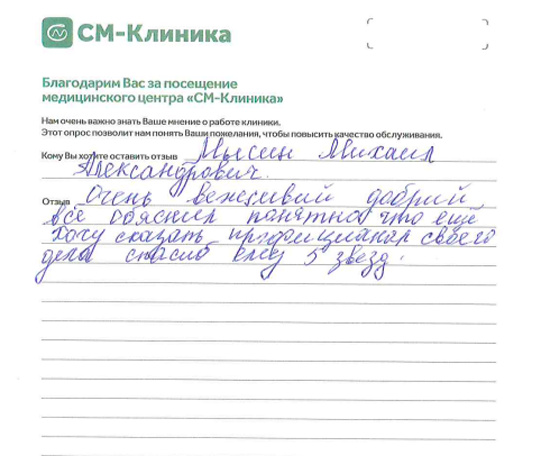 СМ-Клиника
Благодарим Вас за посещение
медицинского центра «СМ-Клиника»
Нам очень важно знать Ваше мнение о работе клиники.
Этот опрос позволит нам понять Ваши пожелания, чтобы повысить качество обслуживания.
Кому Вы хотите оставить отзыв Мысин Михаил
Александрович.
Отзыв Очень вежливий добрий
все обяснил понятно что ещё
хочу сказать профицианал своего
дела спасибо ему 5 звезд.